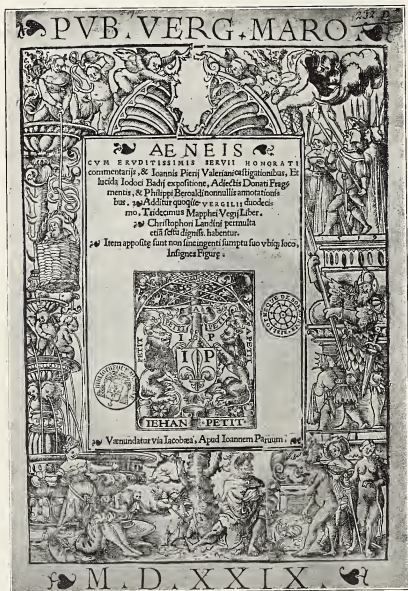 PVB. VERG. MARO.
AENEIS
CVM ERVDITISSIMIS SERVII HONORATI
commentarijs, & Ioannis Pierij Valeriani castigationibus, Et
lucida Iodoci Badij expositione, Adiectis Donati Frag⸗
mentis, & Philippi Beroaldi nonnullis annotationi⸗
bus. Additur quoque VERGILII duodeci⸗
mo, Tridecimus Mapphei Vegij Liber.
Christophori Landini permulta
etiā scitu digniss. habentur.
Item apposite sunt non sine ingenti sumptu suo vbique loco,
Insignes Figure.
PETIT
I P
I P
PETIT
A PETIT
IEHAN PETIT
Vænundatur via Iacobæa, Apud Ioannem Paruum.
M. D. XXIX.